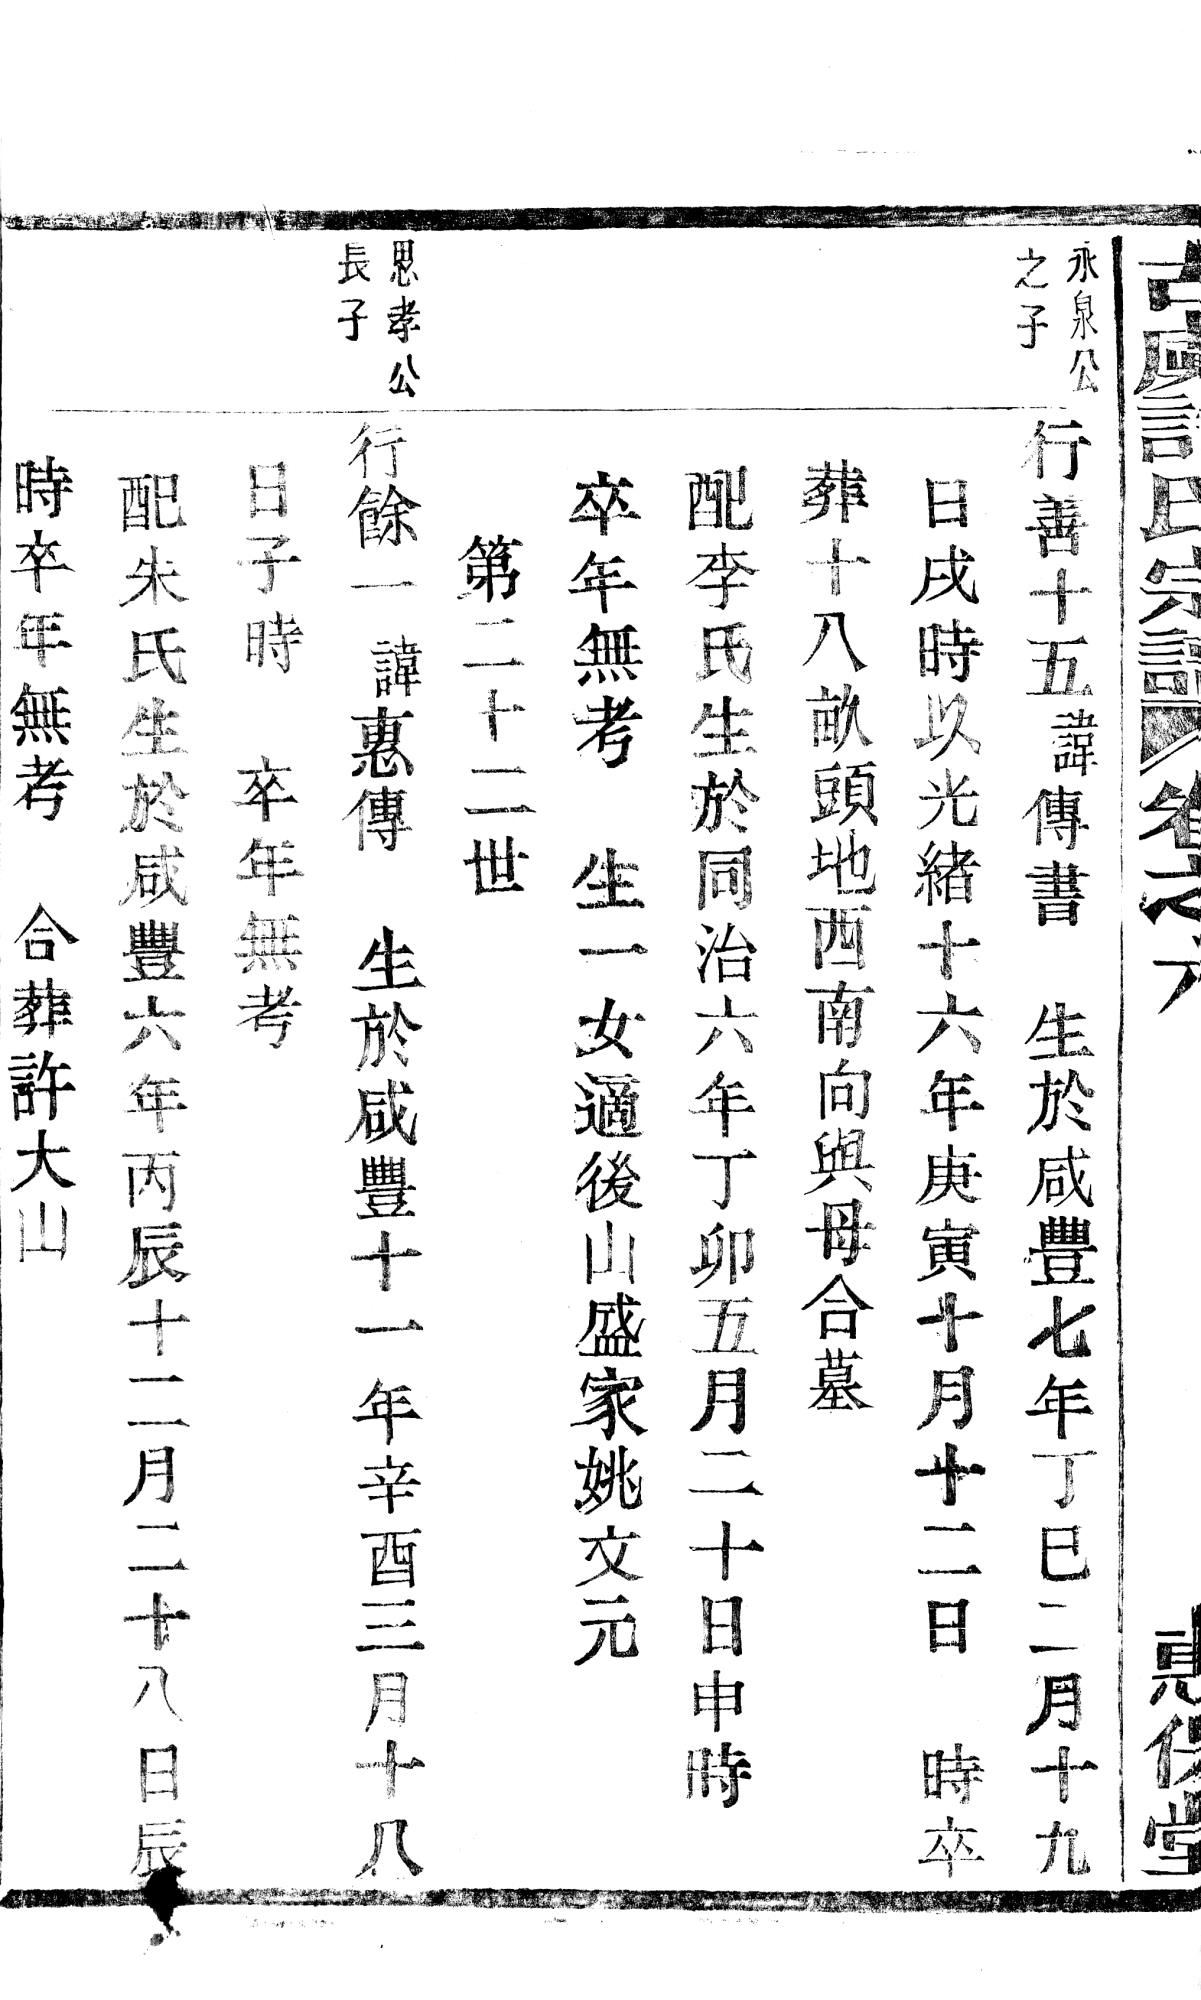 古虞許氏宗譜卷之六
堂
永泉公
之子
行善十五諱傳書　生於咸豐七年丁巳二月十九
日戌時以光緒十六年庚寅十月十二日　時卒
葬十八畝頭地西南向與母合墓
配李氏生於同治六年丁卯五月二十日申時
卒年無考　生一女適後山盛家姚文元
第二十二世
思孝公
長子
行餘一諱惠傳　生於咸豐十一年辛酉三月十八
日子時　卒年無考
配朱氏生於咸豐六年丙辰十二月二十八日辰
時卒年無考　合葬許大山